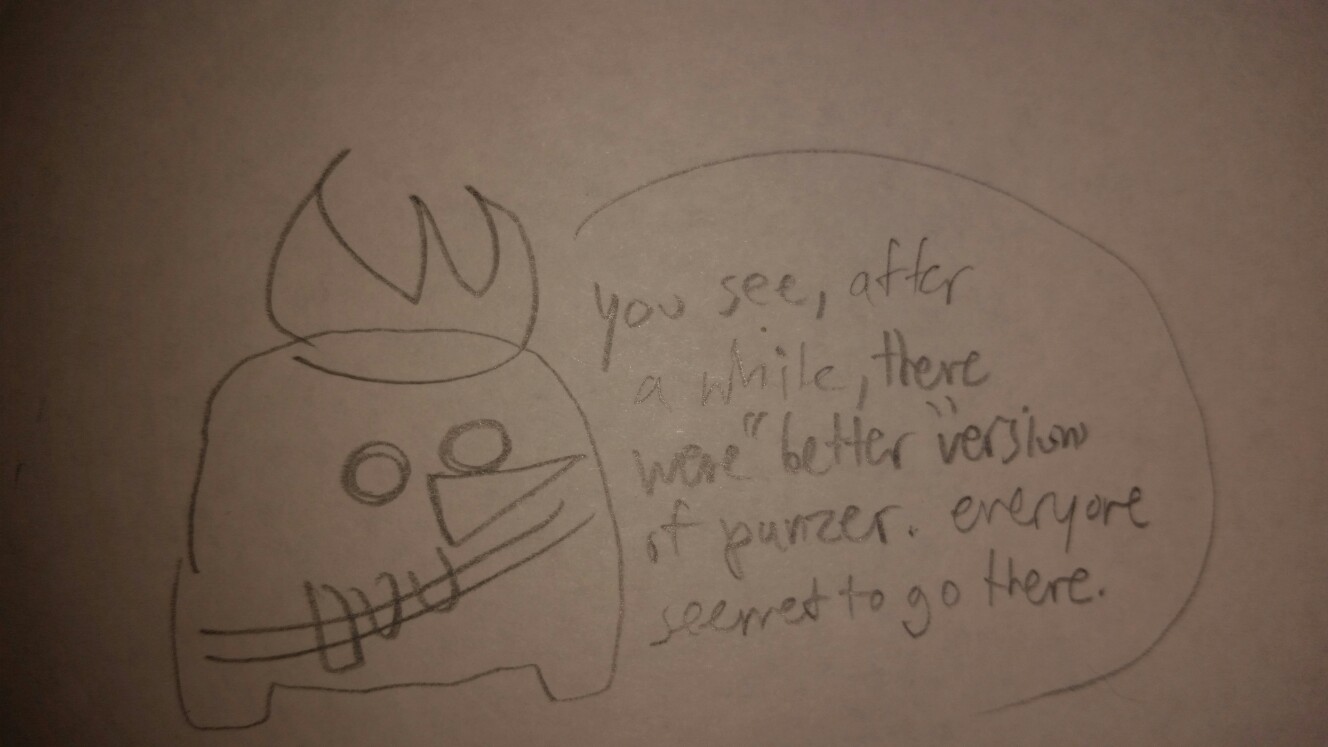 you see, after
a while, there
were "better" version
of punzer. everyone
seemed to go there.